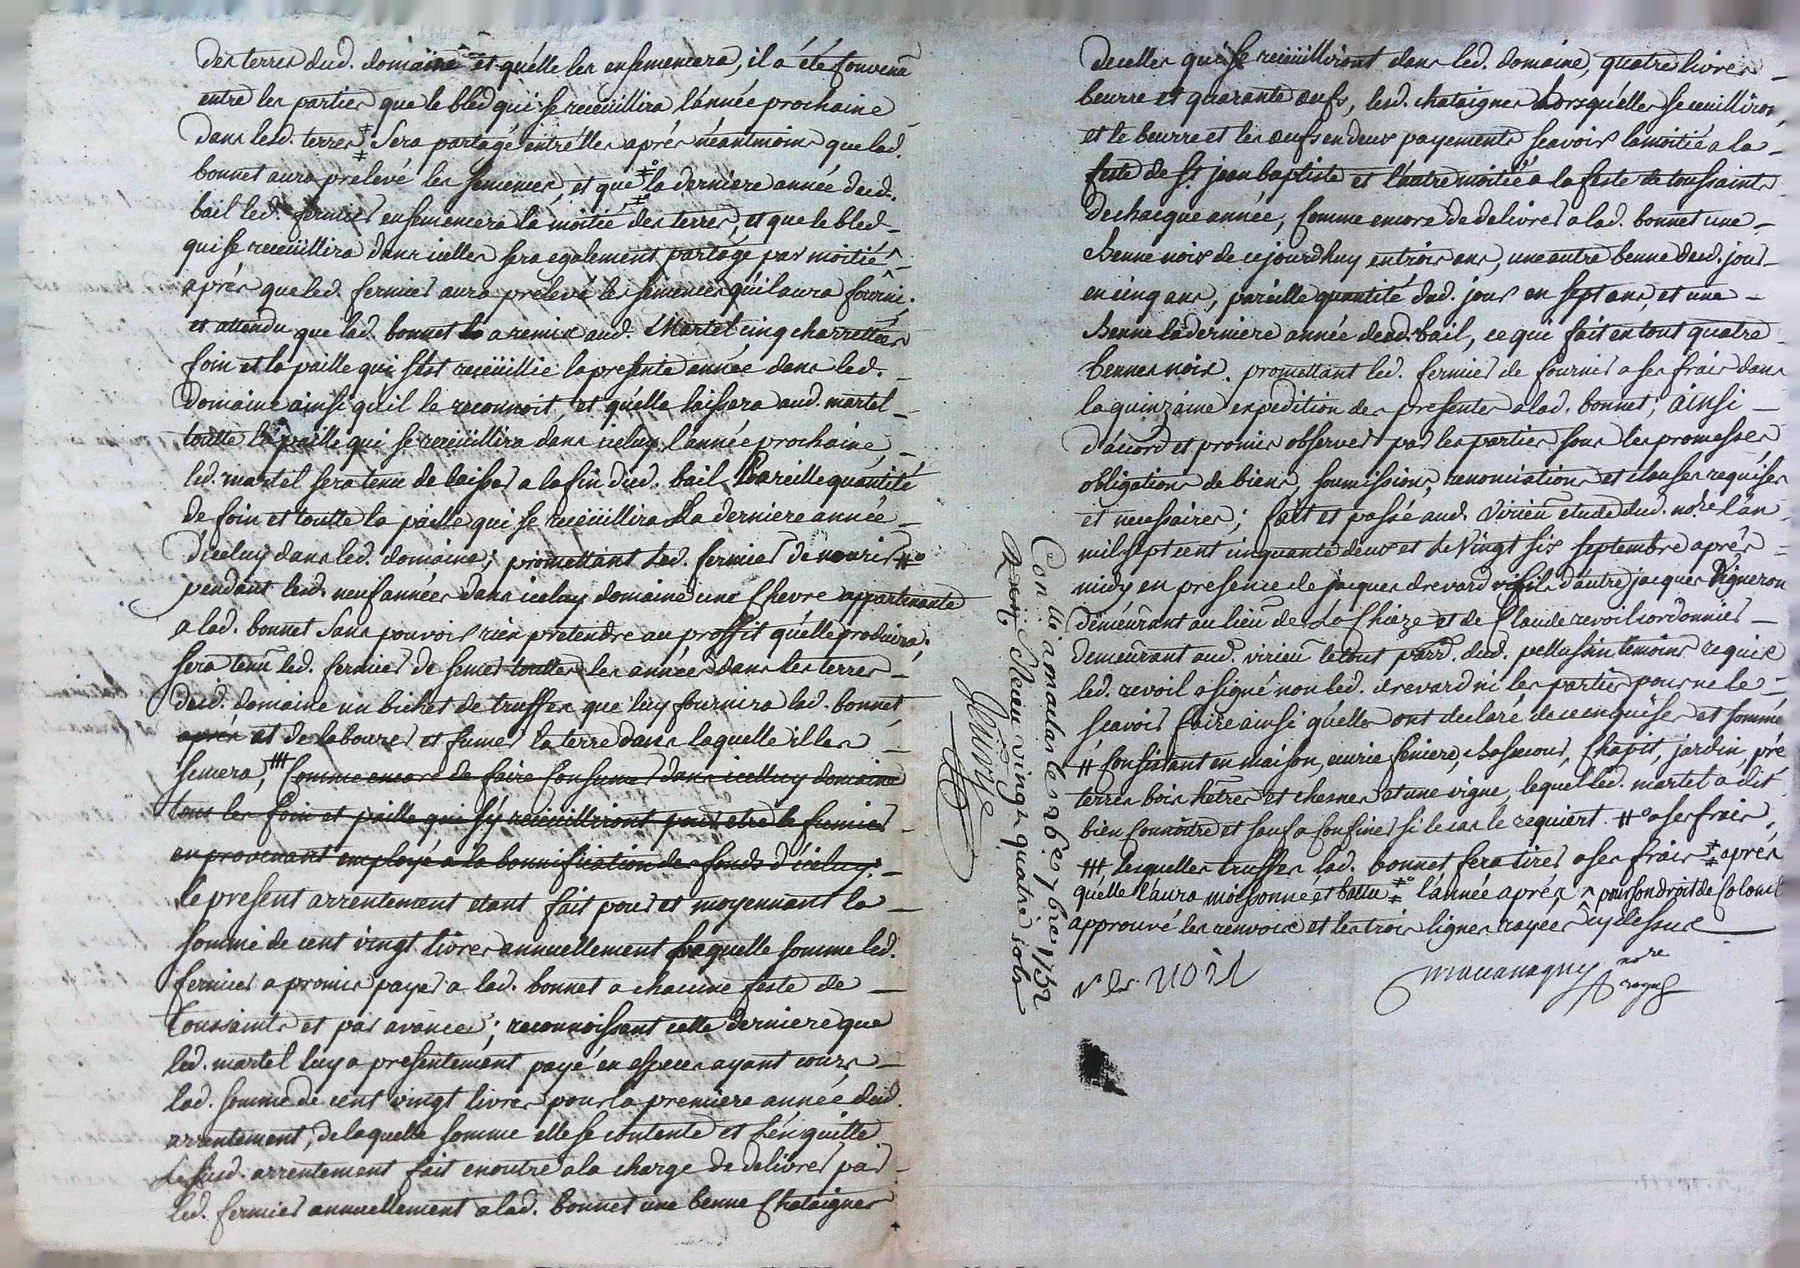 des terres dud. domaine et qu'elle les ensemencera, il a été convenu
entre les parties que le bled qui se receuillira l'année prochaine
dans lesd. terres ‡ sera partagé entr'elles aprés néantmoins que lad.
bonnet aura prelevé les semences, et que ‡° la derniere année dud.
bail led. fermier ensemencera la moitié des terres, et que le bled
qui se receuillira dans icelles sera egalement partagé par moitié ^
aprés que led. fermier aura prelevé les semences qu'il aura fourni.
et attendu que lad. bonnet a remix aud. Martel cinq charrettées
foin et la paille qui s'est receüillie la presente année dans led.
domaine ainsi qu'il le reconnoit, et qu'elle laissera aud. martel
toutte la paille qui se receüillira dans iceluy l'année prochaine,
led. martel sera tenu de laisser a la fin dud. bail Pareille quantité
de foin et toutte la paille qui se receüillira La derniere année
d'iceluy dans led. domaine; promettant Led. fermier de nourir #°
pendant lesd. neuf années dans iceluy domaine une Chevre appartenante
a lad. bonnet sans pouvoir rien pretendre au proffit qu'elle produira;
sera tenu led. fermier de semer touttes les années dans les terres
dud. domaine un bichet de truffes que luy fournira lad. bonnet,
aprés et de labourer et fumer la terre dans laquelle il les
semera, ⧻ Comme encore de faire consumer dans icelluy domaine
tous les foin et paille qui s'y receüilliront pour etre le fumier
en provenant employé a la bonnification des fonds d'iceluy:
le present arrentement etant fait pour et moyennant la
somme de cent vingt livres annuellement laquelle somme led.
fermier a promis payer a lad. bonnet a chacune feste de
toussaints et par avance; reconnoissant cette derniere que
led. martel luy a presentement payé en especes ayant cours
lad. somme de cent vingt livres pour la premiere année dud.
arrentement, de laquelle somme elle se contente et l'en quitte
Le susd. arrentement fait en outre a la charge de delivrer par
led. fermier annuellement a lad. bonnet une benne Chataignes
de celles qui se receüilliront dans led. domaine, quatre livres
beurre et quarante œufs, lesd. chataignes Lorsqu'elles se ceuilliron,
et le beurre et les œufs en deux payements scavoir la moitié a la
feste de St. jean baptiste et l'autre moitié a la feste de toussaints
de chacque année, comme encore de delivrer a lad. bonnet une
benne noix de ce jourdhuy en trois ans, une autre benne dud. jour
en cinq ans, pareille quantité dud. jour en sept ans et une
benne la derniere année dud. bail, ce qui fait en tout quatre
bennes noix. promettant led. fermier de fournir a ses frais dans
la quinzaine expedition des presentes a lad. bonnet; ainsi
d'accord et promis observer par les parties sous les promesses,
obligations de biens, soumissions, renonciations et clauses requises
et necessaires; fait et passé aud. virieu etude dud. nore. l'an
mil sept cent cinquante deux et le vingt six septembre aprés
midy en presence de jacques drevard fils d'autre jacques Vigneron
demeurant au lieu de La Chaze et de Claude revoil cordonnier
demeurant aud. virieu le tout parr. dud. pellussin temoins requis
led. revoil a signé non led. drevard ni les parties pour ne le
scavoir faire ainsi qu'elles ont declaré de ce enquises et sommé
# Consistant en maison, ecurie feniere, chosmeur, Chapit, jardin, pré
terres bois hetres et chesnes et une vigne, lequel led. martel a dit
bien connoitre et sauf a confiner si le cas le requiert. #° a ses frais,
⧻ lesquelles truffes lad. bonnet fera tirer a ses frais ‡ aprés
quelle l'aura moissonné et battu ‡° l'année aprés, ^ pour son droit de Colonel
approuvé les renvois et les trois lignes rayées cy dessus
rev​oil
maccanaguy nore
royal
Con. lé a malas le 26e 7bre 1752
Reçu vingt quatre sols